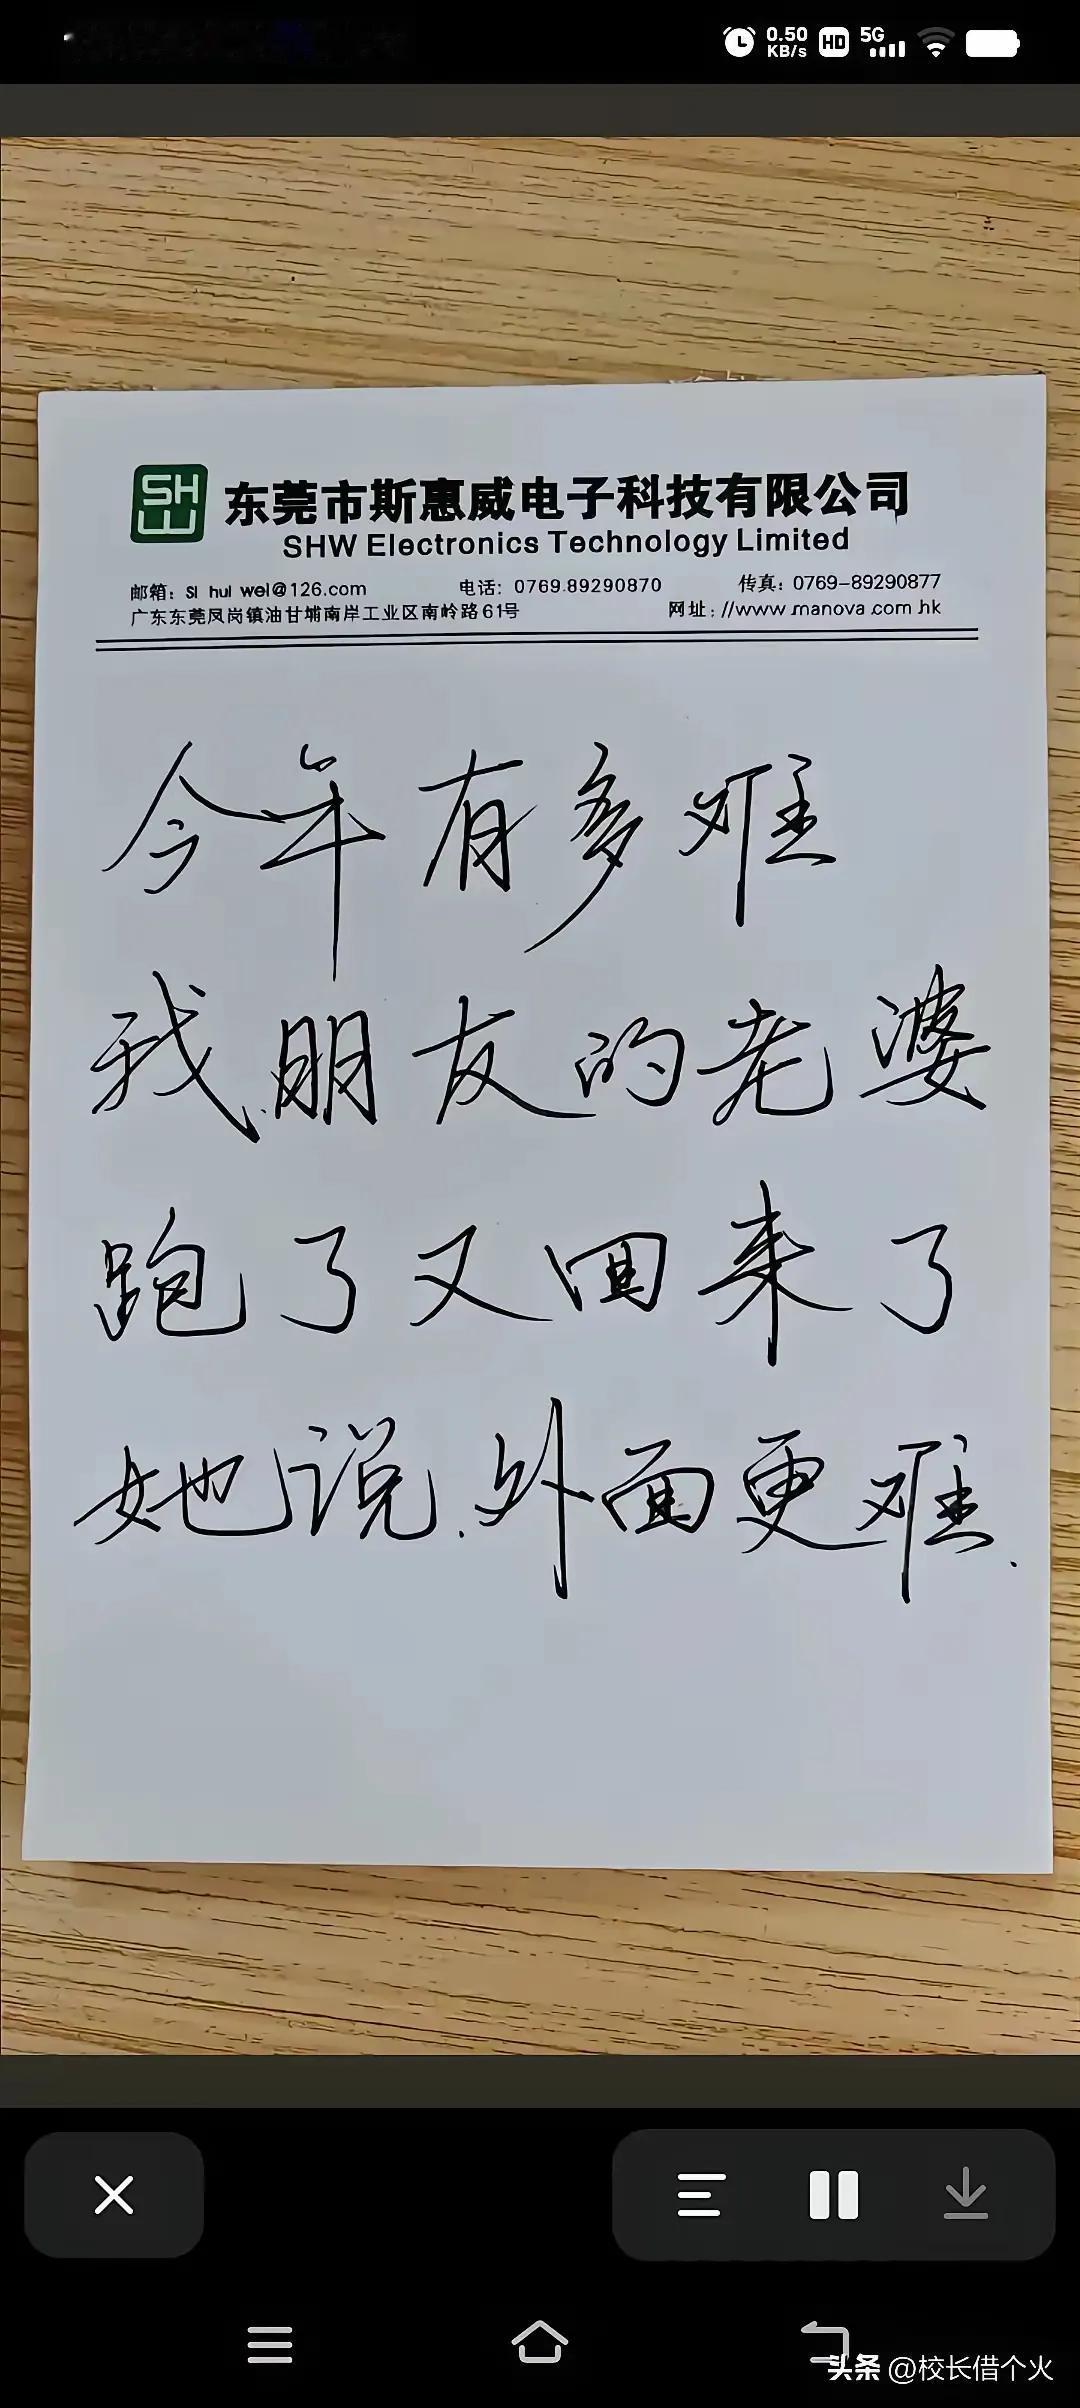 0.50
KB/s
HD
5G
SHW
东莞市斯惠威电子科技有限公司
SHW Electronics Technology Limited
邮箱：Si hui wei@126.com 电话：0769.89290870 传真：0769-89290877
广东东莞凤岗镇油甘埔南岸工业区南岭路61号 网址：//www.manova.com.hk
今年有多难
我朋友的老婆
跑了又回来了
她说.外面更难.
头条 @校长借个火